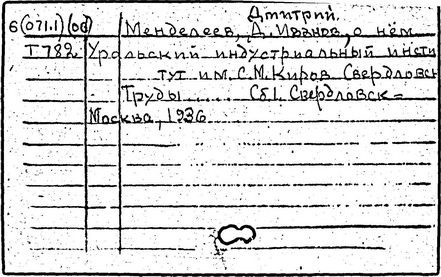 Дмитрий.
6(071.1)(06) Менделеев, Д. Иванов, о нём
Т782 Уральский индустриальный инсти
тут им. С.М. Киров. Свердловск
Труды ..... Сб.1. Свердловск =
Москва, 1936